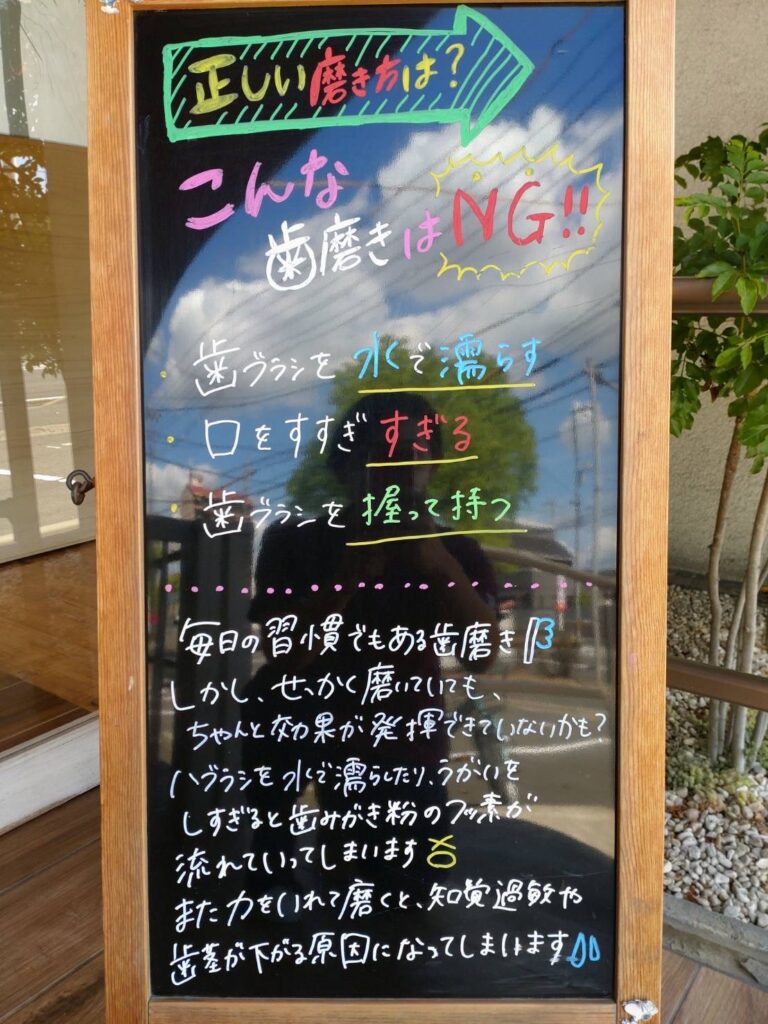 正しい磨き方は?
こんな
歯磨きはNG!!
・歯ブラシを水で濡らす
・口をすすぎすぎる
・歯ブラシを握って持つ
毎日の習慣でもある歯磨き
しかし、せっかく磨いていても、
ちゃんと効果が発揮できていないかも?
ハブラシを水で濡らしたり、うがいを
しすぎると歯みがき粉のフッ素が
流れていってしまいます
また力をいれて磨くと、知覚過敏や
歯茎が下がる原因になってしまいます